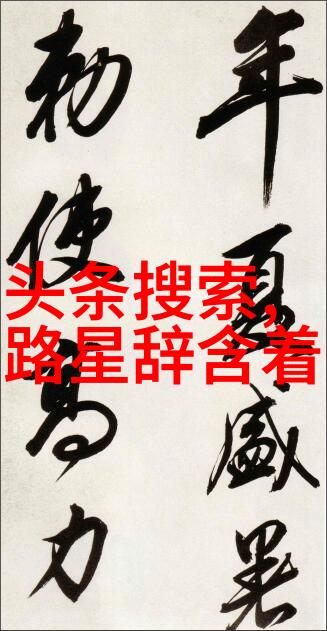 年夏盛暑
勅使高力
头条搜索,
路星辞含着